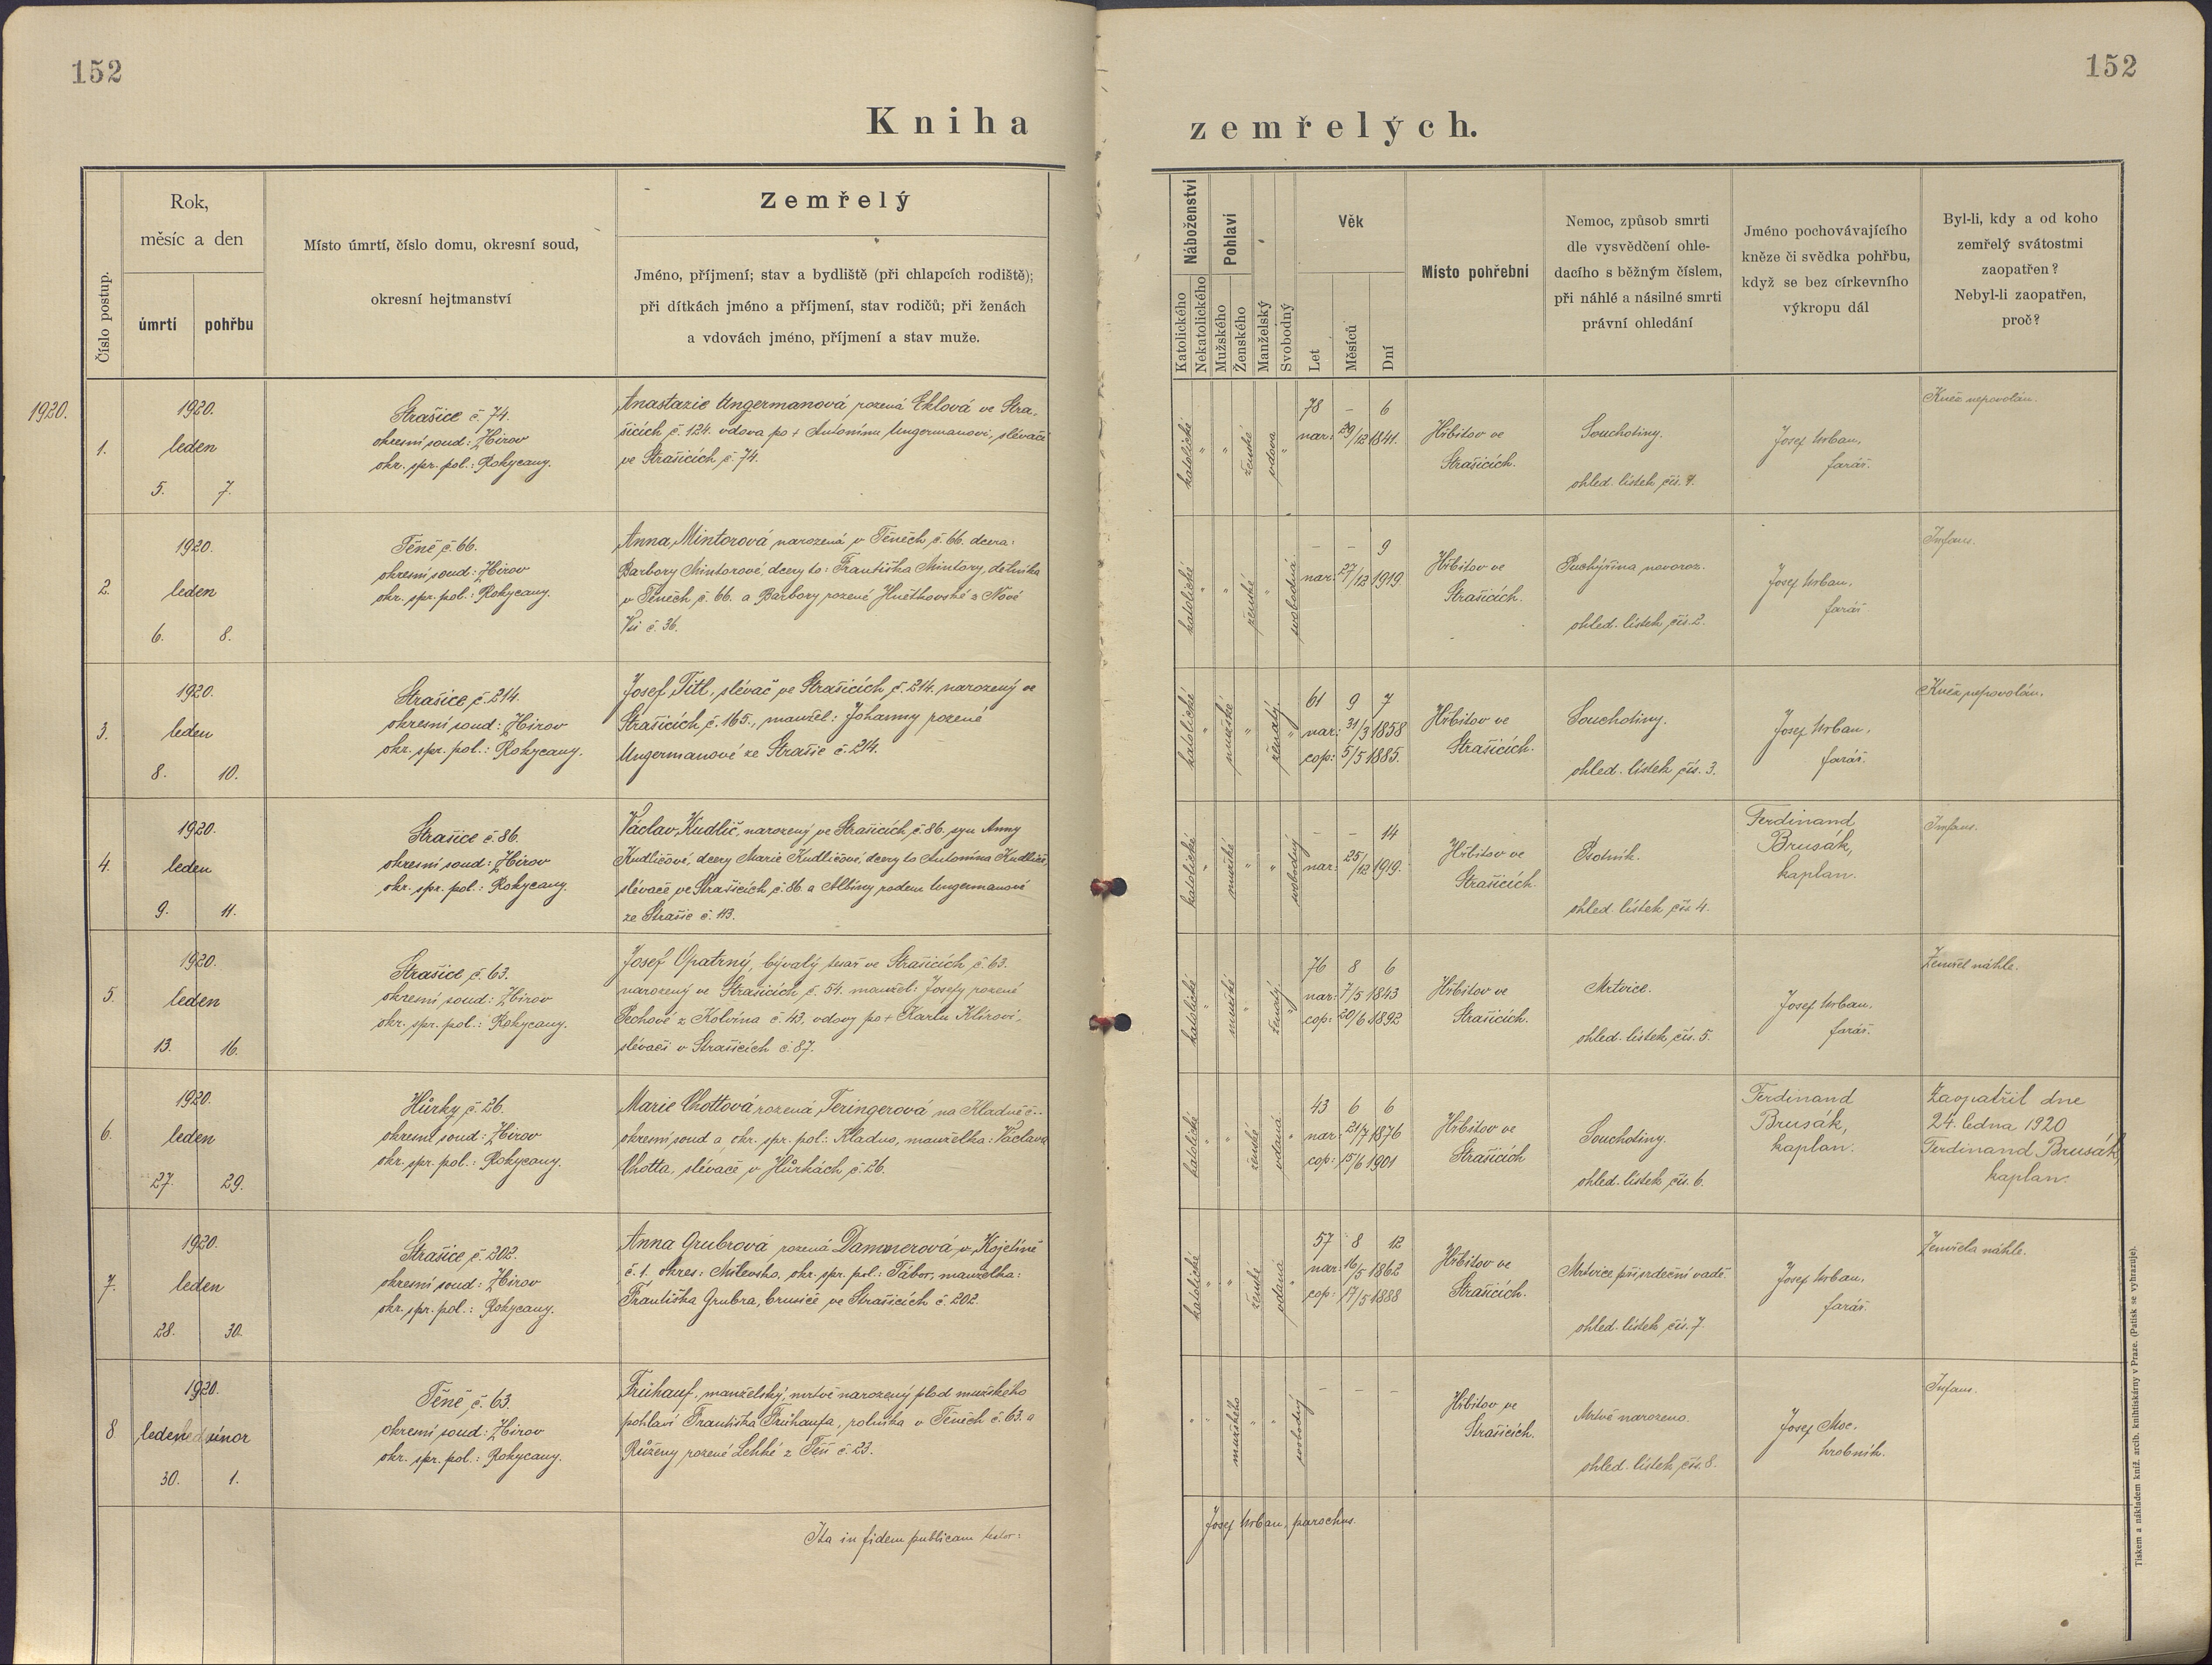 152
152
Kniha zemřelých.
Číslo postup.
Rok,
měsíc a den
úmrtí
pohřbu
Místo úmrtí, číslo domu, okresní soud,
okresní hejtmanství
Zemřelý
Jméno, příjmení; stav a bydliště (při chlapcích rodiště);
při dítkách jméno a příjmení, stav rodičů; při ženách
a vdovách jméno, příjmení a stav muže.
Náboženství
Katolického
Nekatolického
Pohlaví
Mužského
Ženského
Manželský
Svobodný
Věk
Let
Měsíců
Dní
Místo pohřební
Nemoc, způsob smrti
dle vysvědčení ohle-
dacího s běžným číslem,
při náhlé a násilné smrti
právní ohledání
Jméno pochovávajícího
kněze či svědka pohřbu,
když se bez církevního
výkropu dál
Byl-li, kdy a od koho
zemřelý svátostmi
zaopatřen?
Nebyl-li zaopatřen,
proč?
1920.
1.
1920.
leden
5. 7.
Strašice č. 74.
okresní soud: Zbirov
okr. spr. pol.: Rokycany.
Anastazie Ungermanová rozená Eklová ve Stra-
šicích č. 124. vdova po + Antonínu Ungermanovi, slévači
ve Strašicích č. 74.
katolické " " ženské vdova "
78 – 6
nar: 29/12 1841.
Hřbitov ve
Strašicích.
Souchotiny.
ohled. lístek čís. 1.
Josef Urban,
farář.
Kněz nepovolán.
2.
1920.
leden
6. 8.
Těně č. 66.
okresní soud: Zbirov
okr. spr. pol.: Rokycany.
Anna Mintorová narozená v Těnéch č. 66. dcera:
Barbory Mintorové, dcery to: Františka Mintory, dělníka
v Těnéch č. 66. a Barbory rozené Hněťkovské z Nové
Vsi č. 36.
katolické " " ženské " svobodná
– – 9
nar: 27/12 1919.
Hřbitov ve
Strašicích.
Puchýřina novoroz.
ohled. lístek čís. 2.
Josef Urban,
farář
Infans.
3.
1920.
leden
8. 10.
Strašice č. 214.
okresní soud: Zbirov
okr. spr. pol.: Rokycany.
Josef Titl, slévač ve Strašicích č. 214. narozený ve
Strašicích č. 165., manžel: Johanny rozené
Ungermanové ze Strašic č. 214.
katolické " mužské " ženatý "
61 9 7
nar: 31/3 1858
cop: 5/5 1885.
Hřbitov ve
Strašicích.
Souchotiny.
ohled. lístek čís. 3.
Josef Urban,
farář.
Kněz nepovolán.
4.
1920.
leden
9. 11.
Strašice č. 86.
okresní soud: Zbirov
okr. spr. pol.: Rokycany.
Václav Kudlič, narozený ve Strašicích č. 86. syn Anny
Kudličové, dcery Marie Kudličové, dcery to Antonína Kudliče,
slévače ve Strašicích č. 86. a Albiny rodem Ungermanové
ze Strašic č. 113.
katolické " mužské " " svobodný
– – 14
nar: 25/12 1919.
Hřbitov ve
Strašicích.
Psotník.
ohled. lístek čís. 4.
Ferdinand
Brusák,
kaplan.
Infans.
5.
1920.
leden
13. 16.
Strašice č. 63.
okresní soud: Zbirov
okr. spr. pol.: Rokycany.
Josef Opatrný, bývalý tesař ve Strašicích č. 63.
narozený ve Strašicích č. 54. manžel: Josefy rozené
Pechové z Kolvína č. 43, vdovy po + Karlu Klírovi,
slévači v Strašicích č. 87.
katolické " mužské " ženatý "
76 8 6
nar: 7/5 1843
cop: 20/6 1892
Hřbitov ve
Strašicích.
Mrtvice.
ohled. lístek čís. 5.
Josef Urban,
farář.
Zemřel náhle.
6.
1920.
leden
27. 29.
Hůrky č. 26.
okresní soud: Zbirov
okr. spr. pol.: Rokycany.
Marie Chottová rozená Feringerová na Kladně č. -
okresní soud a okr. spr. pol.: Kladno, manželka: Václava
Chotta, slévače v Hůrkách č. 26.
katolické " " ženské vdaná "
43 6 6
nar: 21/7 1876
cop: 15/6 1901
Hřbitov ve
Strašicích
Souchotiny.
ohled. lístek čís. 6.
Ferdinand
Brusák,
kaplan.
Zaopatřil dne
24. ledna 1920
Ferdinand Brusák,
kaplan.
7.
1920.
leden
28. 30.
Strašice č. 202.
okresní soud: Zbirov
okr. spr. pol.: Rokycany.
Anna Grubrová rozená Dammerová v Kojetíně
č. 1. okres: Milevsko, okr. spr. pol.: Tábor, manželka:
Františka Grubra, brusiče ve Strašicích č. 202.
katolické " " ženské vdaná "
57 8 12
nar: 16/5 1862
cop: 17/5 1888
Hřbitov ve
Strašicích.
Mrtvice při srdeční vadě.
ohled. lístek čís. 7.
Josef Urban,
farář.
Zemřela náhle.
8
1920.
leden únor
30. 1.
Těně č. 63.
okresní soud: Zbirov
okr. spr. pol.: Rokycany.
Frühauf, manželský, mrtvě narozený plod mužského
pohlaví Františka Frühaufa, rolníka v Těnéch č. 63. a
Růženy rozené Lehké z Těň č. 23.
" " mužského " " svobodný
– – –
Hřbitov ve
Strašicích.
Mrtvě narozeno.
ohled. lístek čís. 8.
Josef Moc,
hrobník.
Infans.
Ita in fidem publicam testor:
Josef Urban, parochus.
Tiskem a nákladem kníž. arcib. knihtiskárny v Praze. (Patisk se vyhrazuje).